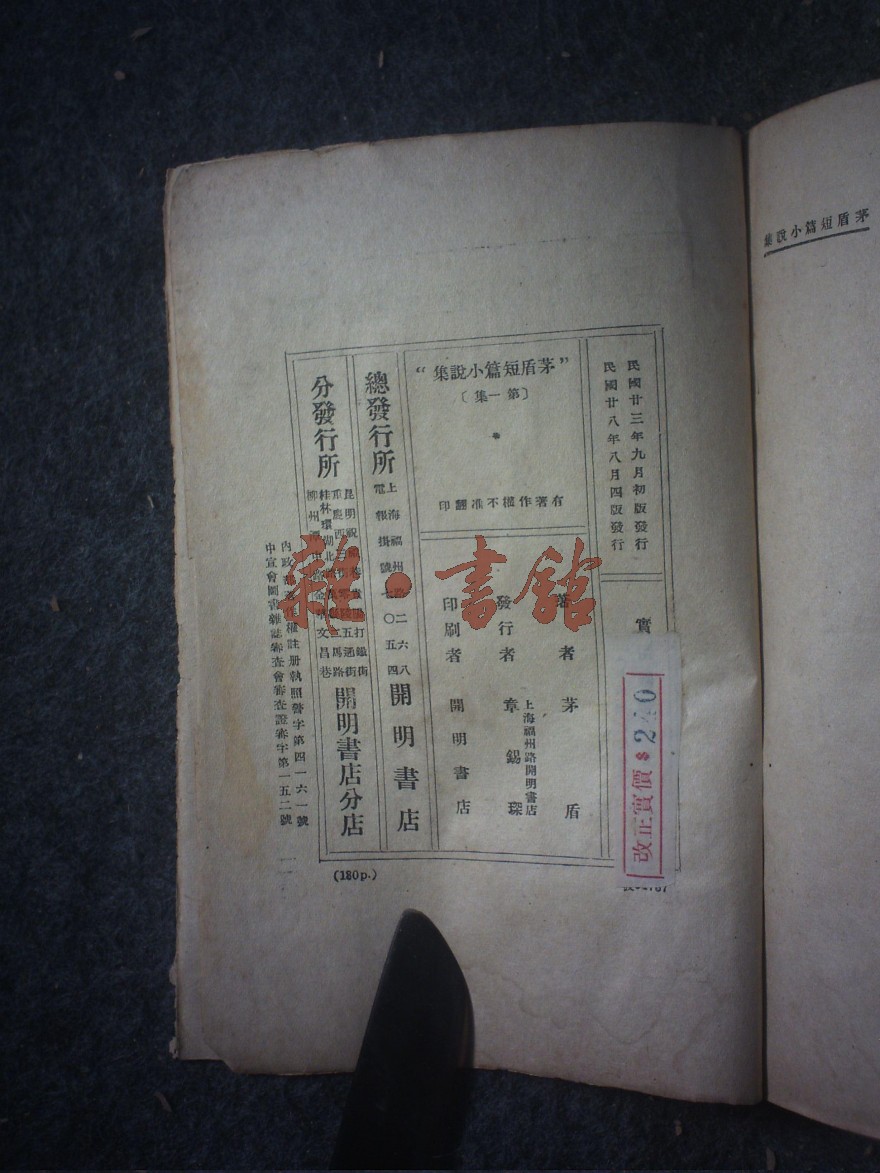 茅盾短篇小說集
民國廿三年九月初版發行
民國廿八年八月四版發行
實
改正實價 $240
"茅盾短篇小說集"
〔第一集〕
有著作權不准翻印
著者 茅盾
發行者 章錫琛
上海福州路開明書店
印刷者 開明書店
總發行所
上海福州路二六八
電報掛號〇五四
開明書店
分發行所
開明書店分店
內政部著作權註册執照警字第四一六一號
中宣會圖書雜誌審查會審查證審字第一五二號
(180p.)
雜·書館